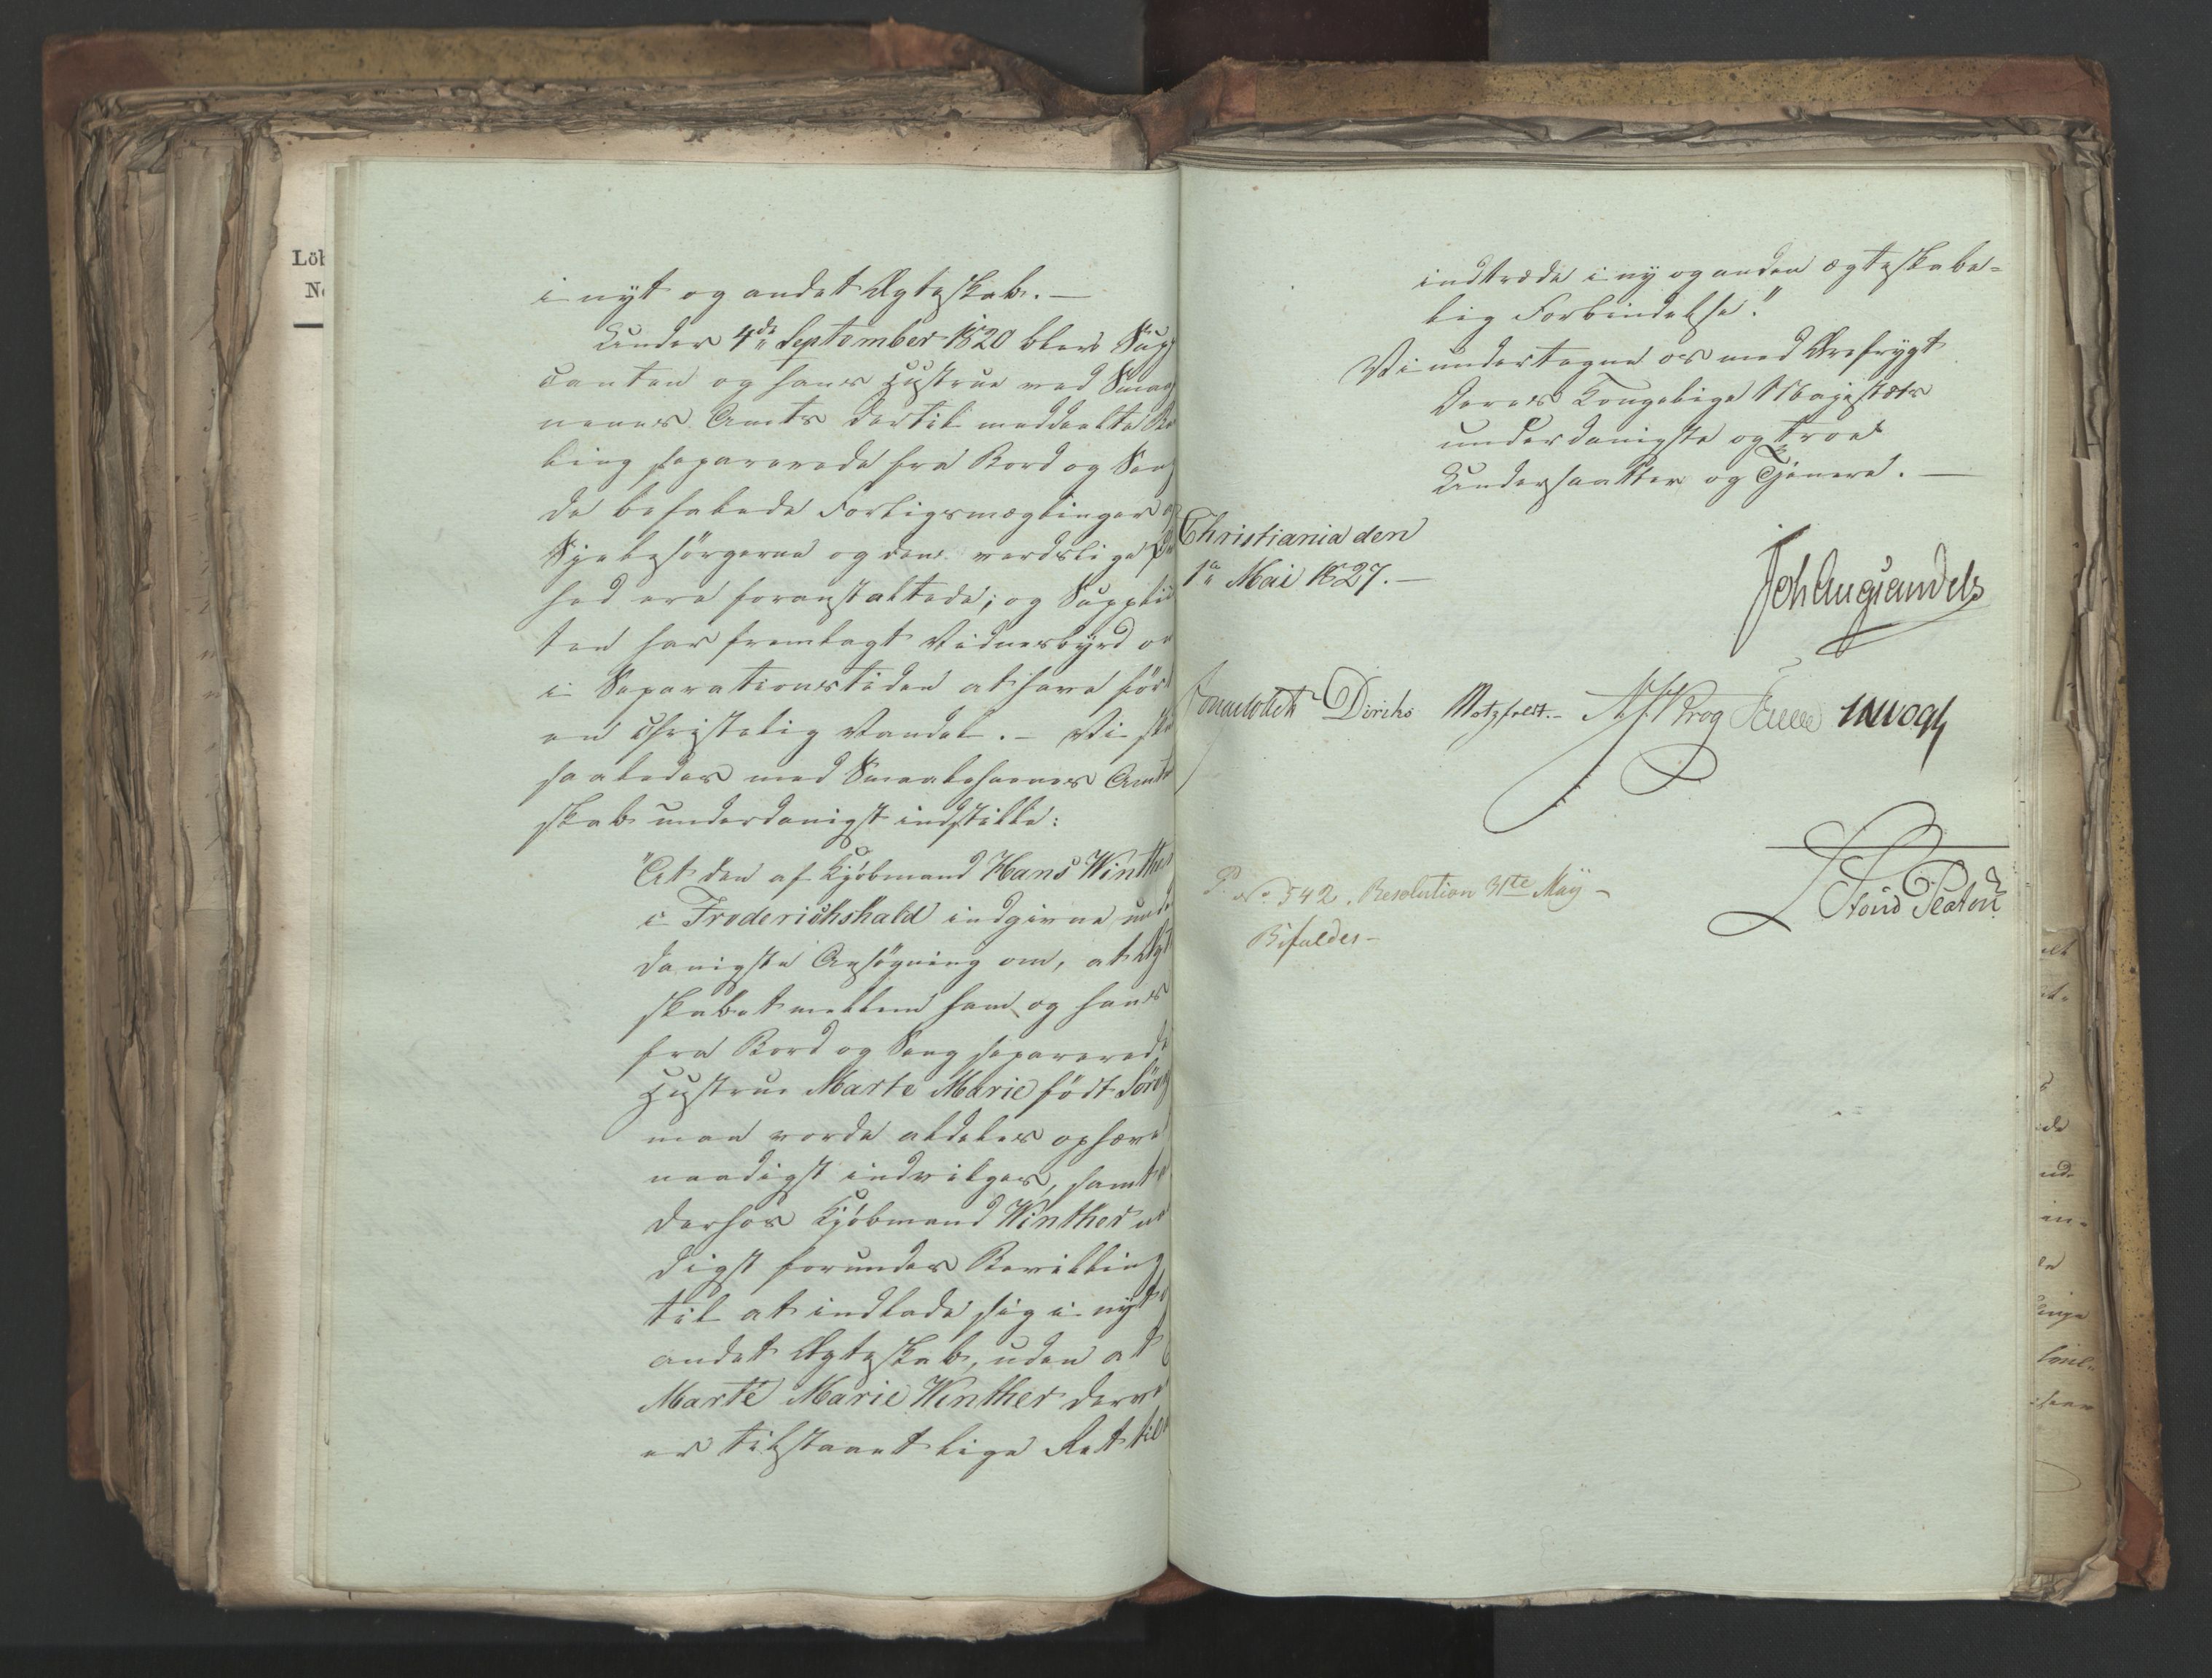 Löb
No
i nyt og andet Ægteskab. —
Under 4de September 1820 blev Sup
canten og hans Hustrue ved Smaa
nenes Amts dertil meddeelte Be
ling separerede fra Bord og Seng
de befalede Forligsmæglinger
Sjelesörgerne og den verdslige
hed ere foranstaltede; og Supplic
ten har fremlagt Vidnesbyrd om
i Separationstiden at have fört
en christelig Vandel. — Vi sk
saaledes med Smaalehnenes Amt
skab underdanigst indstille:
"At den af Kjöbmand Hans Winther
i Frederichshald indgivne under
danigste Ansögning om, at Ægte
skabet mellem ham og hans
fra Bord og Seng separerede
Hustrue Marte Marie födt Sören
maa vorde aldeles ophævet
naadigst indvilges, samt
derhos Kjöbmand Winther naa
digst forundes Bevilling
til at indlade sig i nyt
andet Ægteskab, uden at
Marte Marie Winther derved
er tilstaaet lige Ret til
indtræde i ny og anden ægteskabe-
lig Forbindelse."
Vi undertegne os med Ærefrygt
Deres Kongelige Majestæts
underdanigste og troe
Undersaatter og Tjenere. —
Christiania den
1e Mai 1827. —
Joh Aug Sandels
Jonas Collett Diriks Motzfeldt. — A. Krog IHVogt
P. No. 542. Resolution 31te Maÿ —
Bifaldes —